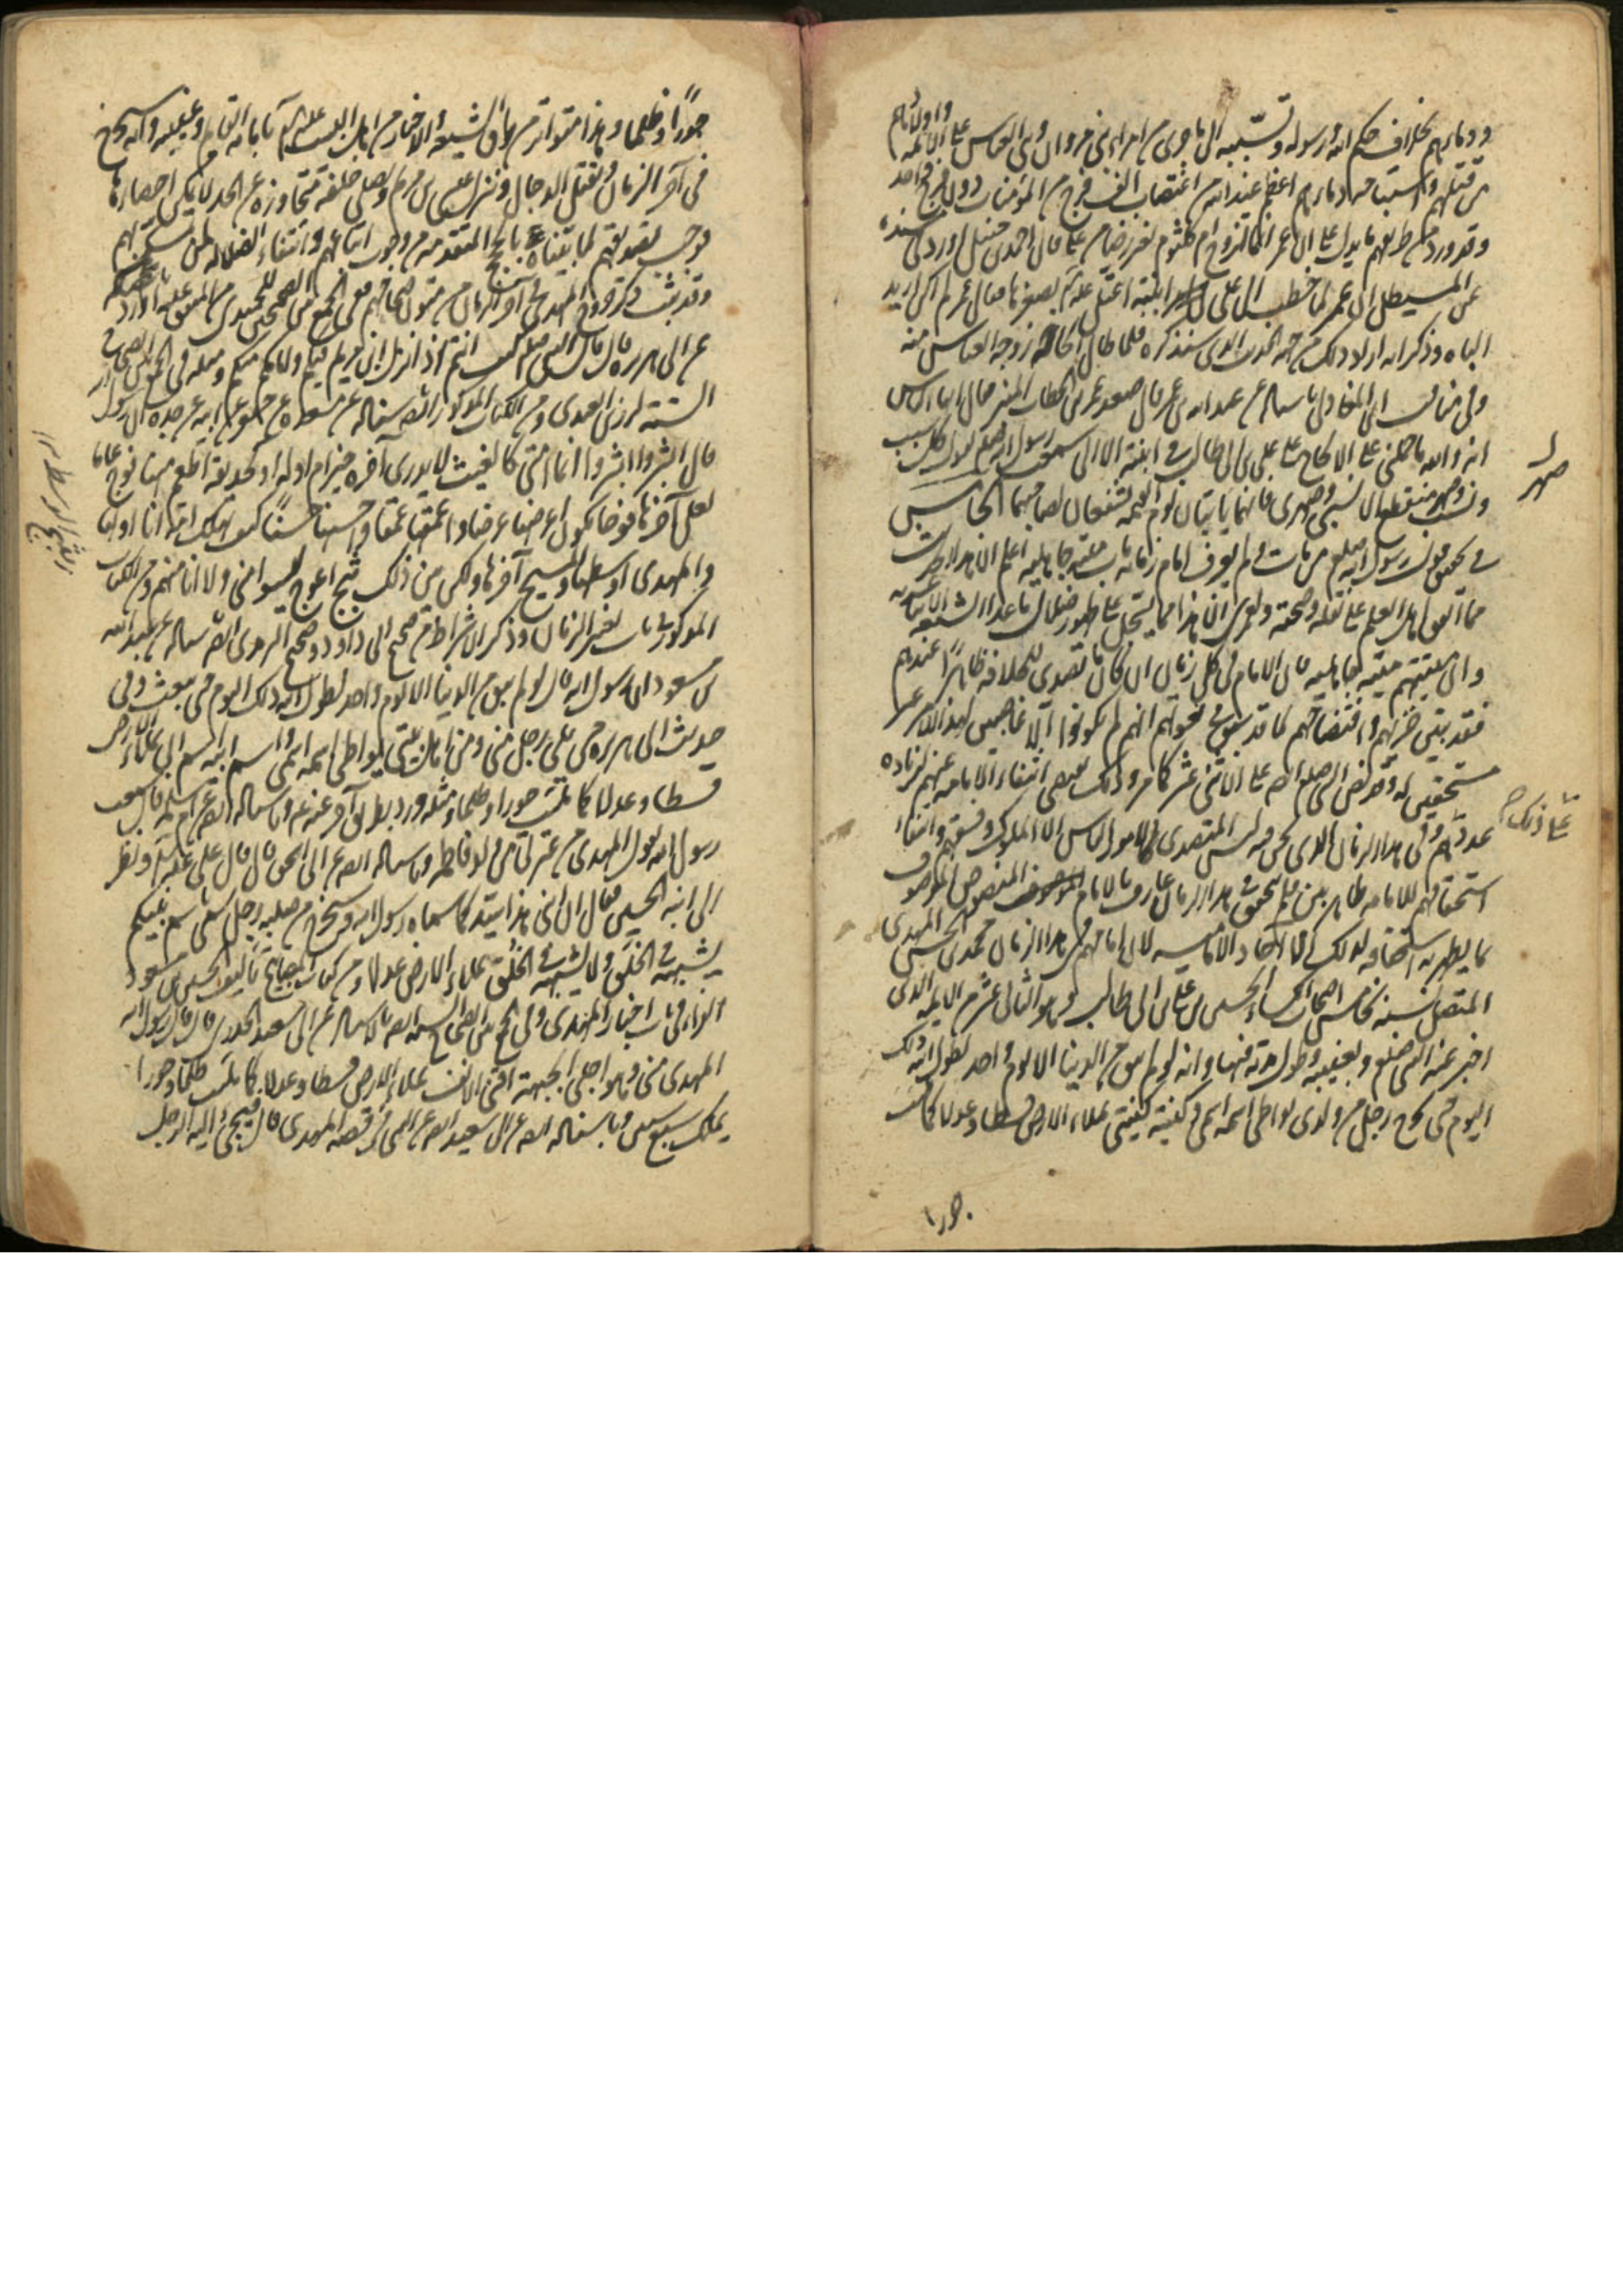 ودماءهم بخلاف حكم الله ورسوله وتسببه الى ما جرى من امراء بنى مروان وبنى العباس على الائمة واولادهم
من قتلهم واستباحه دماءهم اعظم عند الله من اغتصاب الف فرج من المؤمنات دون فرج واحد
وقد ورد من طريقهم ما يدل على ان عمر انما تزوج ام كلثوم لغير رضا من على قال احمد بن حنبل
عن ان عمر لما خطب الى على ابنته اعتل عليه بصغرها فقال عمر لم اكن اريد
الباه وذكر انه اراد ذلك من جهة الحديث الذى سنذكره فلما طال زوجه العباس منه
وفى مناقب ابن المغازلى باسناده عن عبد الله بن عمر قال صعد عمر بن الخطاب المنبر فقال ايها الناس
انه والله ما حملنى على الالحاح على على بن ابى طالب فى ابنته الا انى سمعت رسول الله صلعم يقول كل سبب
ونسب وصهر منقطع الا نسبى وصهرى فانهما ياتيان يوم القيمه يشفعان لصاحبهما
صهر
فى تحقيق قول رسول الله صلعم من مات ولم يعرف امام زمانه مات ميتة جاهليه اعلم ان هذا الحديث
مما اتفق اهل العلم على نقله وصحته ان هذا مما يسجل على ظهور ضلال ما عدا الشيعه الاثنا عشريه
وان ميتتهم ميتة جاهليه فان الامام فى كل زمان ان كان ما تصدى للخلافه ظاهرا عندهم
فقد تبين خزيهم وافتضاحهم لما قد سبق انهم لم يكونوا الا غاصبين لهذا الامر غير
مستحقين له ونص النبى صلعم على الاثنى عشر كما مر وذلك يقتضى انتفاء الامامه عنهم لزياده
على ذلك
عددهم وفى هذا الزمان الذى نحن فيه ليس المتصدى لامور الناس الا الملوك وفسقهم وانتفاء
استحقاقهم للامامه ظاهر بين فلم يتحقق فى هذا الزمان عارف بالامام المنصوص الموصوف
بما يظهر به استحقاقه لذلك الا آحاد الاماميه لان امامهم فى هذا الزمان محمد بن الحسن المهدى
المتصل نسبه بخامس اصحاب الكساء الحسين بن على بن ابى طالب وهو الثانى عشر من الائمه الذى
اخبر عنه النبى صلعم وبغيبته وطول مدته فيها وانه لو لم يبق من الدنيا الا يوم واحد لطول الله ذلك
اليوم حتى يخرج رجل من ولدى يواطى اسمه اسمى وكنيته كنيتى يملاء الارض قسطا وعدلا كما ملئت
جورا
جورا وظلما وهذا متواتر من طرق الشيعه والاخبار من اهل البيت عليهم السلام بانه القايم وبغيبته وانه يخرج
فى آخر الزمان ويقتل الدجال وينزل عيسى بن مريم ويصلى خلفه متجاوزه عن الحد لا يمكن احصاءها
فوجب تصديقهم لما بيناه بالحجج المتقدمه من وجوب اتباعهم وانتفاء الضلاله لمن تمسك بهم
وقد ثبت ذكره وخروج المهدى فى آخر الزمان من متون صحاحهم ففى الجمع بين الصحيحين للحميدى من المتفق عليه
عن ابى هريره قال قال النبى صلعم كيف انتم اذا نزل ابن مريم فيكم وامامكم منكم ومثله فى الجمع بين الصحاح
الستة لرزين العبدرى ومن الكتاب المذكور ايضا باسناده عن مسعده عن جعفر عن ابيه عن جده ان رسول الله
قال ابشروا ابشروا انما امتى كالغيث لا يدرى آخره خير ام اوله او كحديقه اطعم منها فوج عاما
لعل آخرها فوجا يكون اعرضها عرضا واعمقها عمقا واحسنها حسنا كيف تهلك امة انا اولها
والمهدى اوسطها والمسيح آخرها ولكن من ذلك ثبج اعوج ليسوا منى ولا انا منهم ومن الكتاب
المذكور فى باب تغير الزمان وذكر الاشراط من صحيح ابى داود وصحيح الترمذى ايضا باسناده عن عبد الله
بن مسعود ان رسول الله قال لو لم يبق من الدنيا الا يوم واحد لطول الله ذلك اليوم حتى يبعث وفى
حديث ابى هريره حتى يلى رجل منى ومن اهل بيتى يواطى اسمه اسمى واسم ابيه اسم ابى يملاء الارض
قسطا وعدلا كما ملئت جورا وظلما ومثله ورد بطريق آخر عنه وباسناده ايضا عن ام سلمه قالت سمعت
رسول الله يقول المهدى من عترتى من ولد فاطمه وباسناده ايضا عن ابى اسحق قال قال على عليه السلام ونظر
الى ابنه الحسين فقال ان ابنى هذا سيد كما سماه رسول الله وسيخرج من صلبه رجل يسمى باسم نبيكم
يشبهه فى الخلق ولا يشبهه فى الخلق يملاء الارض عدلا ومن كتاب المصابيح تاليف الحسين بن مسعود
الفراء فى باب اخبار المهدى وفى الجمع بين الصحاح الستة ايضا باسناده عن ابى سعيد الخدرى قال قال رسول الله
المهدى منى وهو اجلى الجبهة اقنى الانف يملاء الارض قسطا وعدلا كما ملئت ظلما وجورا
يملك سبع سنين وباسناده ايضا عن ابى سعيد ايضا عن النبى فى قصه المهدى قال فيجئ اليه الرجل